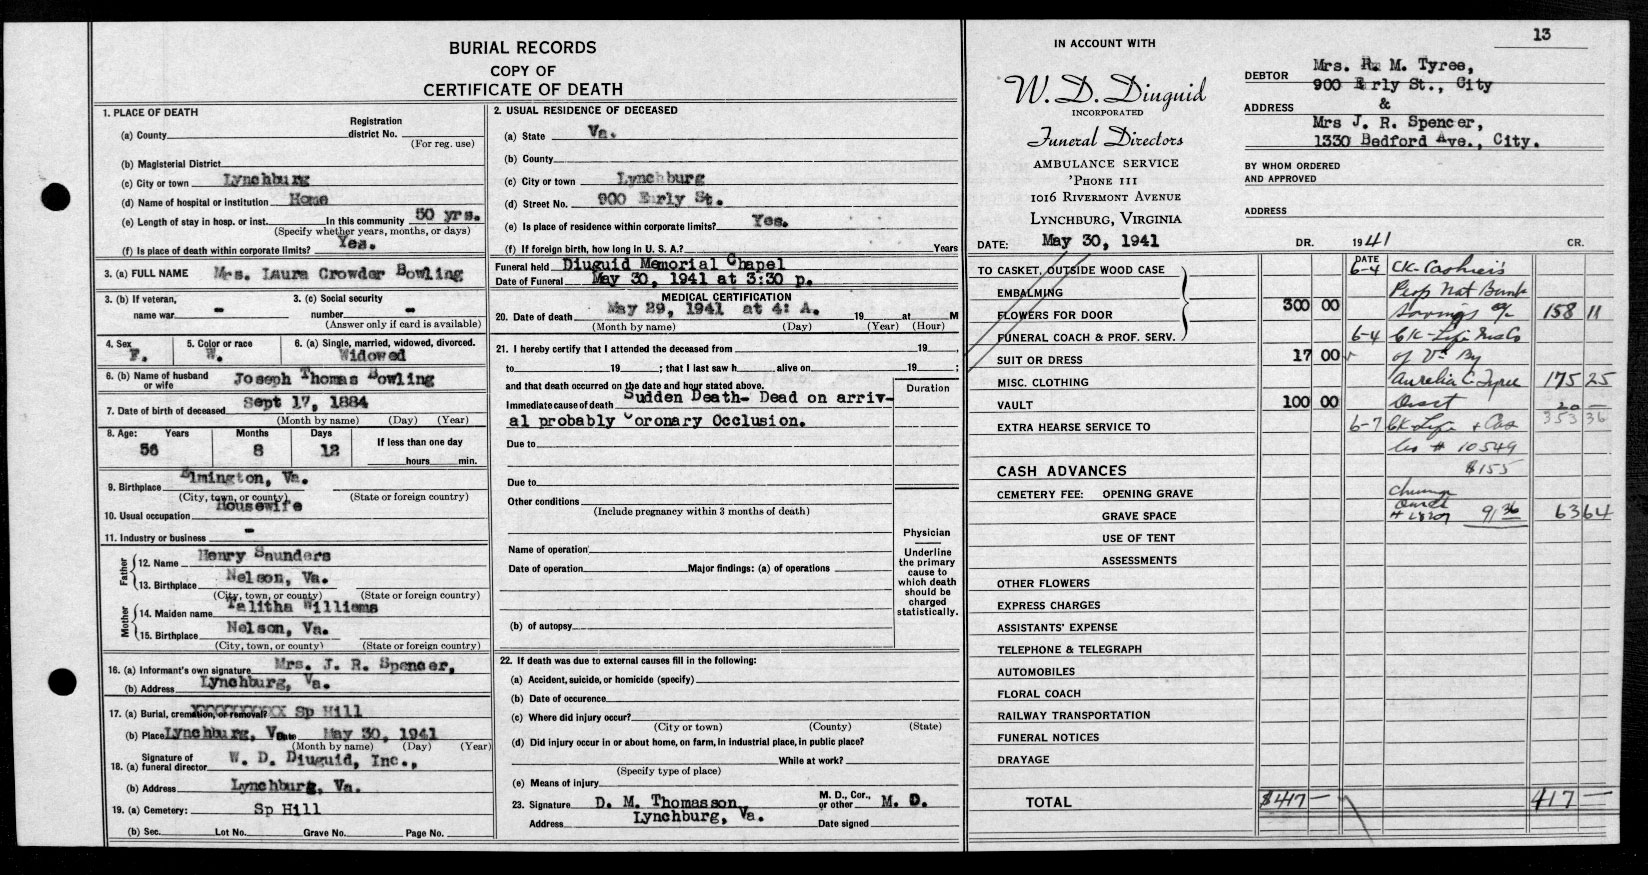 BURIAL RECORDS
COPY OF
CERTIFICATE OF DEATH
1. PLACE OF DEATH
Registration
(a) County district No.
(For reg. use)
(b) Magisterial District
(c) City or town Lynchburg
(d) Name of hospital or institution Home
(e) Length of stay in hosp. or inst. In this community 50 yrs.
(Specify whether years, months, or days)
(f) Is place of death within corporate limits? Yes.
3. (a) FULL NAME Mrs. Laura Crowder Bowling
3. (b) If veteran, 3. (c) Social security
name war - number -
(Answer only if card is available)
4. Sex 5. Color or race 6. (a) Single, married, widowed, divorced.
F. W. Widowed
6. (b) Name of husband
or wife Joseph Thomas Bowling
7. Date of birth of deceased Sept 17, 1884
(Month by name) (Day) (Year)
8. Age: Years Months Days If less than one day
56 8 12 hours min.
9. Birthplace Elmington, Va.
(City, town, or county) (State or foreign country)
10. Usual occupation Housewife
11. Industry or business -
Father
12. Name Henry Saunders
13. Birthplace Nelson, Va.
(City, town, or county) (State or foreign country)
Mother
14. Maiden name Talitha Williams
15. Birthplace Nelson, Va.
(City, town, or county) (State or foreign country)
16. (a) Informant's own signature Mrs. J. R. Spencer,
(b) Address Lynchburg, Va.
17. (a) Burial, cremation, or removal? XXXXXXXXXX Sp Hill
(b) Place Lynchburg, Va Date May 30, 1941
(Month by name) (Day) (Year)
Signature of
18. (a) funeral director W. D. Diuguid, Inc.,
(b) Address Lynchburg, Va.
19. (a) Cemetery: Sp Hill
(b) Sec. Lot No. Grave No. Page No.
2. USUAL RESIDENCE OF DECEASED
(a) State Va.
(b) County
(c) City or town Lynchburg
(d) Street No. 900 Early St.
(e) Is place of residence within corporate limits? Yes.
(f) If foreign birth, how long in U. S. A.? Years
Funeral held Diuguid Memorial Chapel
Date of Funeral May 30, 1941 at 3:30 p.
MEDICAL CERTIFICATION
20. Date of death May 29, 1941 at 4: A. 19 at M
(Month by name) (Day) (Year) (Hour)
21. I hereby certify that I attended the deceased from 19 ,
to 19 ; that I last saw h alive on 19 ;
and that death occurred on the date and hour stated above. Duration
Immediate cause of death Sudden Death- Dead on arriv-
al probably Coronary Occlusion.
Due to
Due to
Other conditions
(Include pregnancy within 3 months of death)
Physician
Underline
the primary
cause to
which death
should be
charged
statistically.
Name of operation
Date of operation Major findings: (a) of operations
(b) of autopsy
22. If death was due to external causes fill in the following:
(a) Accident, suicide, or homicide (specify)
(b) Date of occurence
(c) Where did injury occur?
(City or town) (County) (State)
(d) Did injury occur in or about home, on farm, in industrial place, in public place?
While at work?
(Specify type of place)
(e) Means of injury
23. Signature D. M. Thomasson, M. D., Cor., or other M. D.
Address Lynchburg, Va. Date signed
13
IN ACCOUNT WITH
W. D. Diuguid
INCORPORATED
Funeral Directors
AMBULANCE SERVICE
'PHONE 111
1016 RIVERMONT AVENUE
LYNCHBURG, VIRGINIA
DEBTOR Mrs. R. M. Tyree,
900 Early St., City
ADDRESS &
Mrs J. R. Spencer,
1330 Bedford Ave., City.
BY WHOM ORDERED
AND APPROVED
ADDRESS
DATE: May 30, 1941 DR. 1941 CR.
DATE
TO CASKET, OUTSIDE WOOD CASE 6-4 CK- Cashier's
EMBALMING Peop Nat Bank
FLOWERS FOR DOOR 300 00 Savings a/c 158 11
FUNERAL COACH & PROF. SERV. 6-4 CK- Life Ins Co
SUIT OR DRESS 17 00 of Va By
MISC. CLOTHING Aurelia C. Tyree 175 25
VAULT 100 00 Disct 20 -
EXTRA HEARSE SERVICE TO 6-7 CK Life & Cas 353 36
Co # 10549
CASH ADVANCES $155
CEMETERY FEE: OPENING GRAVE change
GRAVE SPACE 91 36 63 64
USE OF TENT
ASSESSMENTS
OTHER FLOWERS
EXPRESS CHARGES
ASSISTANTS' EXPENSE
TELEPHONE & TELEGRAPH
AUTOMOBILES
FLORAL COACH
RAILWAY TRANSPORTATION
FUNERAL NOTICES
DRAYAGE
TOTAL $417 - 417 -